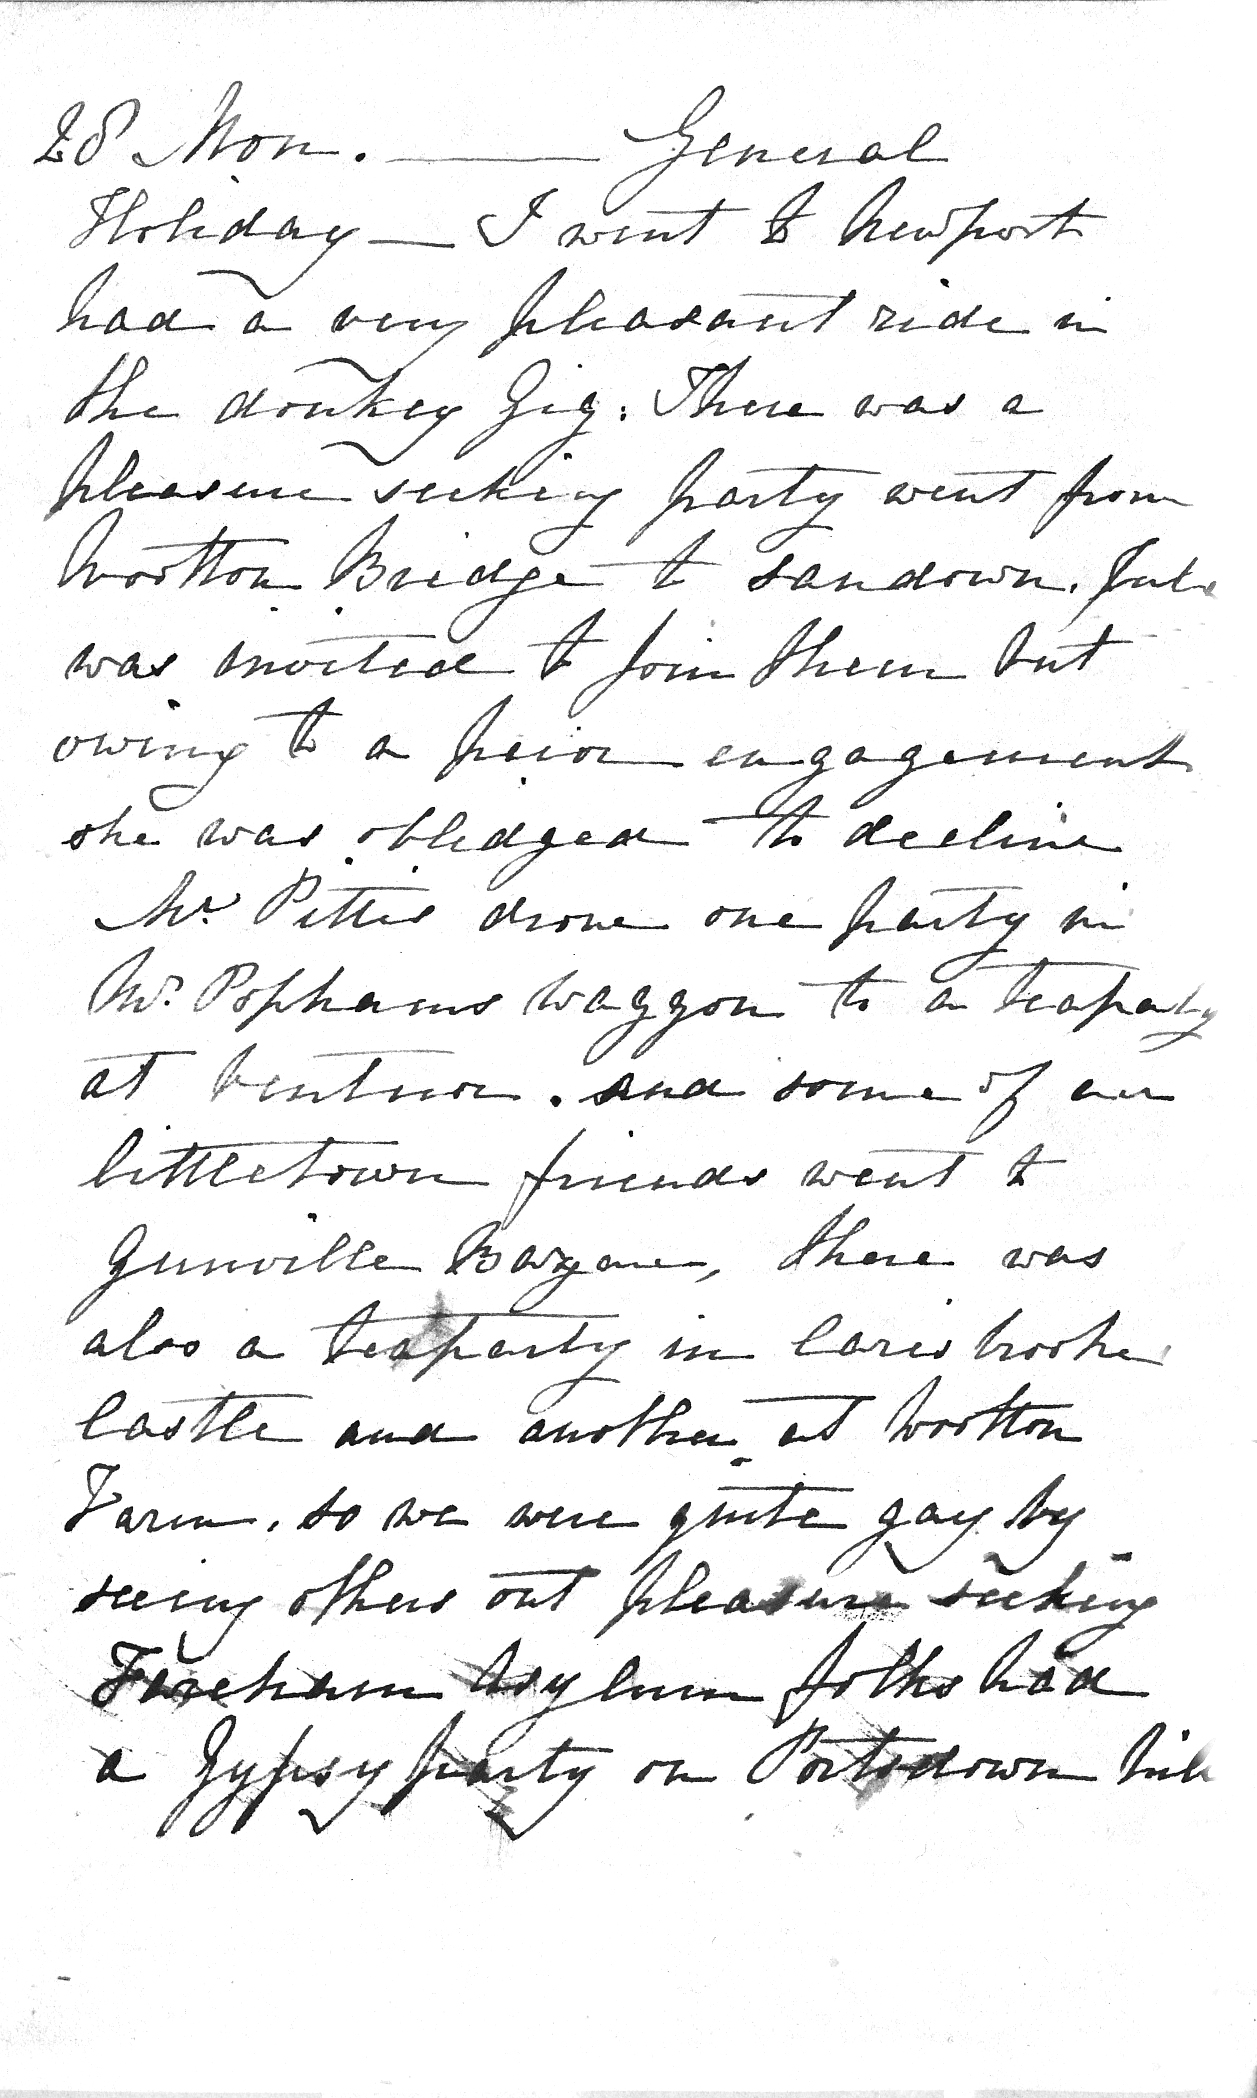 28 Mon. — General
Holiday — I went to Newport
had a very pleasant ride in
the donkey Gig. There was a
pleasure seeking party went from
Wootton Bridge to Sandown.
was invited to join them but
owing to a prior engagement
she was obledged to decline
Mr. Pittis drove one party in
Mr. Pophams waggon to a teaparty
at Ventnor. and some of our
littletown friends went to
Gunville Bazaar, there was
also a teaparty in Carisbrooke
Castle and another at Wootton
Farm. so we were quite gay by
seeing others out pleasure seeking
Fareham Asylum folks had
a Gypsy party on Portsdown hill